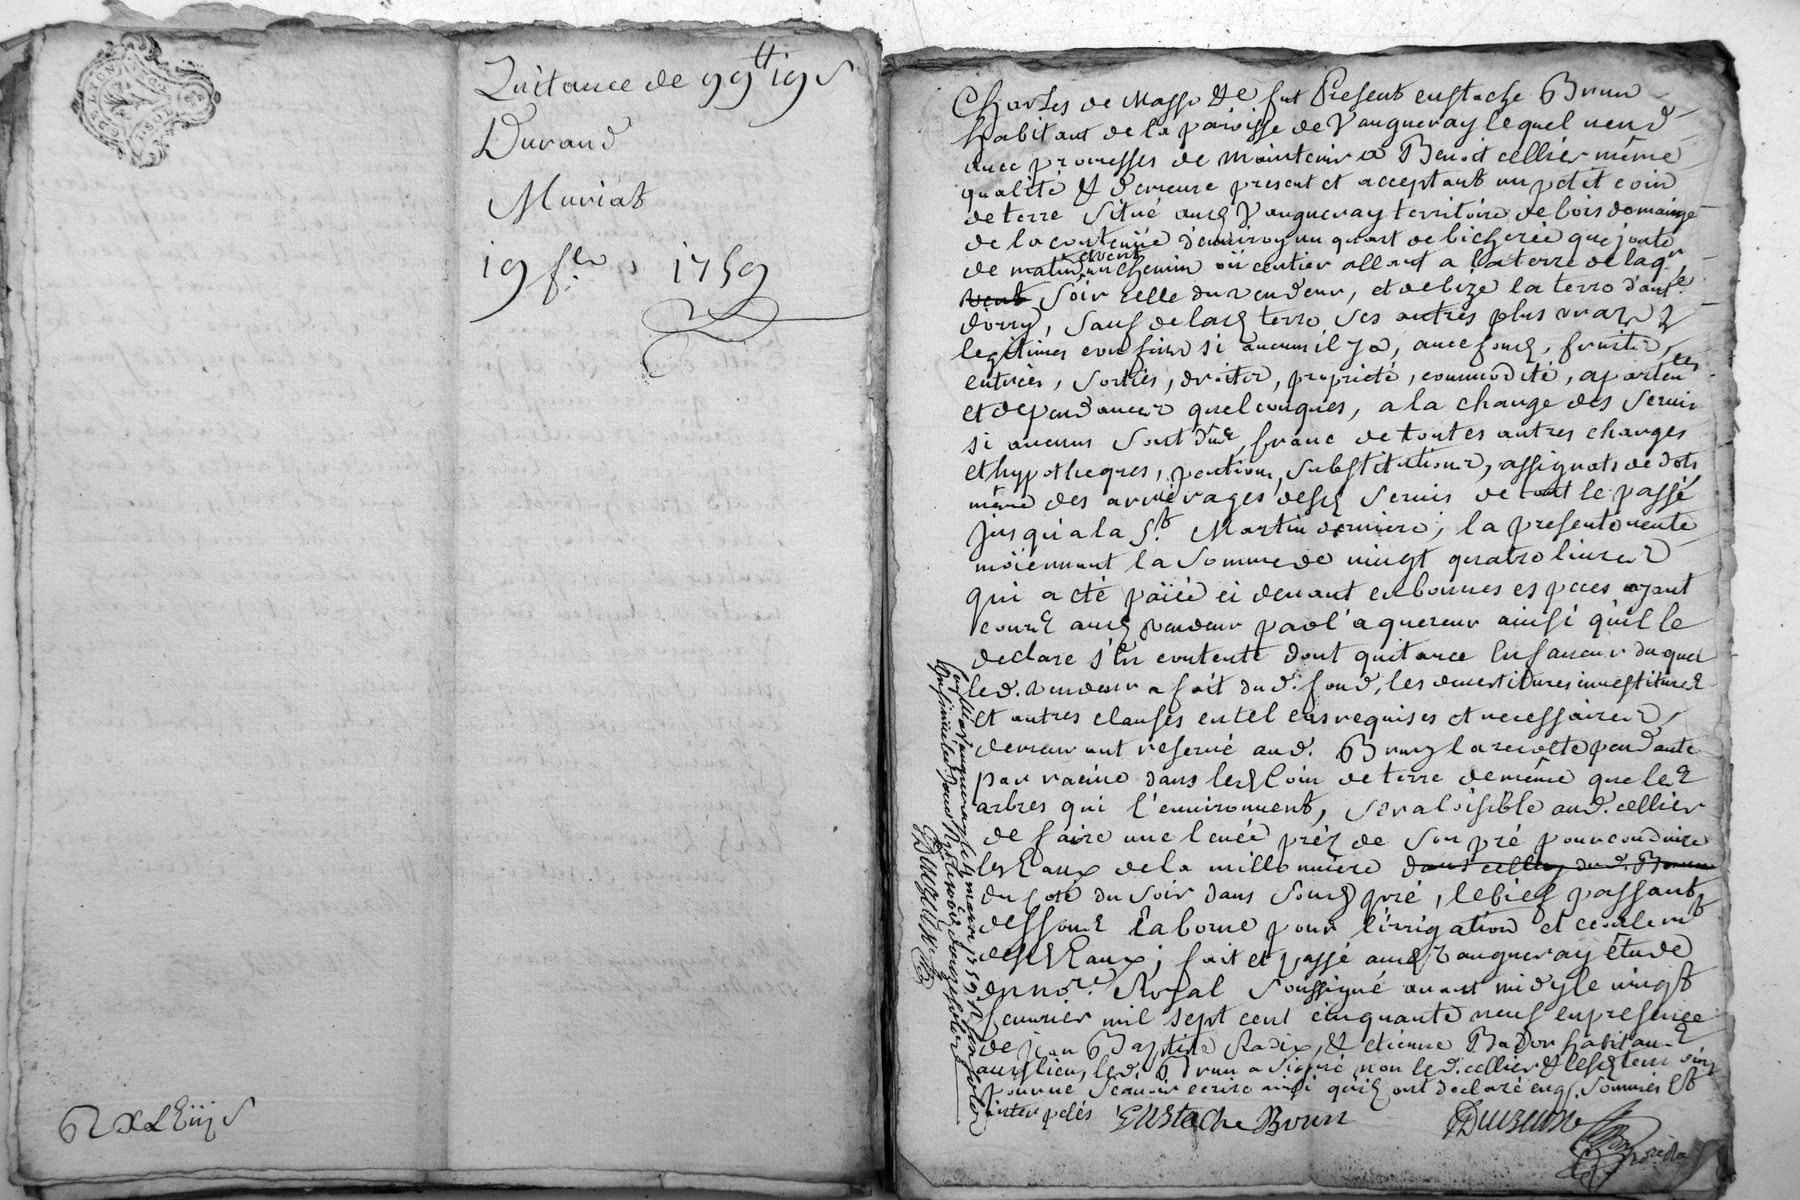 Quitance de 99tt 19s
Durand
Muriat
19 fer 1759
Charles de Masso &e fut Present eustache Brun
habitant de la paroisse de Vaugneray lequel vend
avec promesses de maintenir a Benoit cellier même
qualité & demeure present et acceptant un petit coin
de terre situé aud Vaugneray territoire de bois domainge
de la contenüe d'environ un quart de bicherée que joute
de matin et vent un chemin où centier allant a la terre de laqr
vent soir celle du vendeur, et de bize la terre d'antle
d'orry, sauf de lad terre ses autres plus vrais &
legitimes confins si aucuns il y a, avec fond, fruits,
entrées, sorties, droits, proprieté, commodité, aparten
et dependances quelconques, a la charge des servis
si aucuns sont dus, franc de toutes autres charges
et hypotheques, pention, substitutions, assignats de dots
même des arrièrages desd servis de tout le passé
jusqu'a la St. Martin derniere, la presente vente
moiennant la somme de vingt quatre livres
qui a été païée ci devant en bonnes especes ayant
cours aud vendeur par l'aquereur ainsi qu'il le
declare s'en contente dont quitance en faveur duquel
led. vendeur a fait dud. fond, les devestitures investitures
et autres clauses en tel cas requises et necessaires
demeurant reservé aud. Brun la recolte pendante
par racine dans led Coin de terre de même que les
arbres qui l'environnent, sera loisible aud. cellier
de faire une levée préz de son pré pour conduire
les Eaux de la millonniere dans celluy dud. Brun
du coté du soir dans sond pré, le bief passant
dessous la borne pour l'irrigation et ecoulemt
desd Eaux; fait et passé aud Vaugneray étude
du nore. Royal soussigné avant midy le vingt
fevrier mil sept cent cinquante neuf en presence
de jean Baptiste Radix, & etienne Bador habitans
aud lieu, led. Brun a signé non led. cellier & lesd temoins
pour ne scavoir ecrire ainsi qu'ils ont declaré enq. sommés &
interpelés Eustache Brun